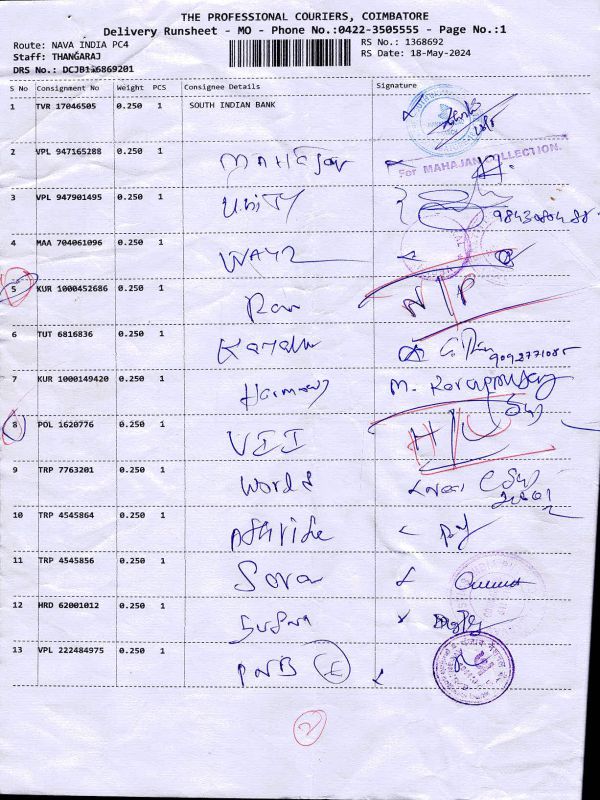 THE PROFESSIONAL COURIERS, COIMBATORE
Delivery Runsheet - MO - Phone No.:0422-3505555 - Page No.:1
Route: NAVA INDIA PC4
RS No.: 1368692
Staff: THANGARAJ
RS Date: 18-May-2024
DRS No.: DCJB136869201
S No Consignment No Weight PCS Consignee Details Signature
1 TVR 17046505 0.250 1 SOUTH INDIAN BANK
2 VPL 947165288 0.250 1 MAHAJan
For MAHAJAN COLLECTION.
3 VPL 947901495 0.250 1 UniTY
4 MAA 704061096 0.250 1 WAYZ
5 KUR 1000452686 0.250 1 Ran N/P
6 TUT 6816836 0.250 1 9092771085
7 KUR 1000149420 0.250 1 Harmony M. Karuppusamy
8 POL 1620776 0.250 1 VII H/L
9 TRP 7763201 0.250 1 World
10 TRP 4545864 0.250 1
11 TRP 4545856 0.250 1 Sora
12 HRD 62001012 0.250 1 Supra
13 VPL 222484975 0.250 1 PNB E
2